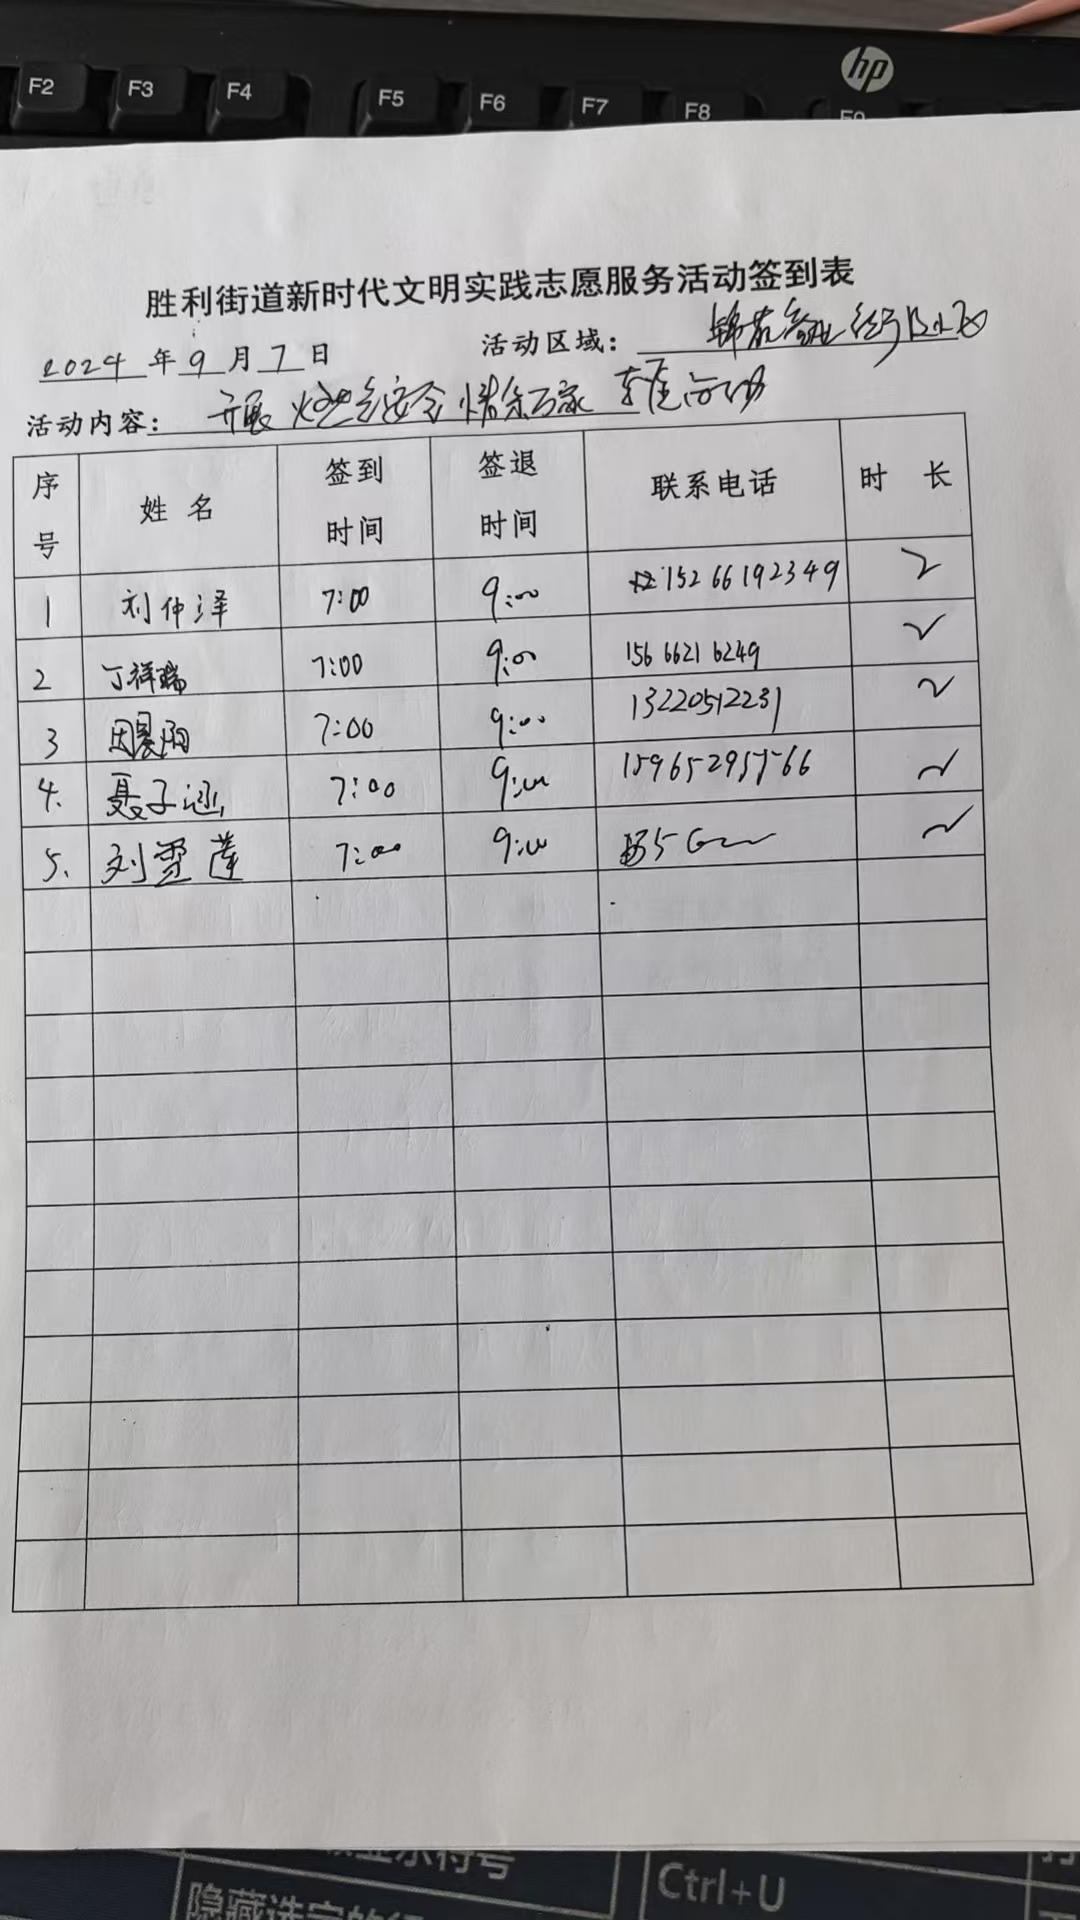 F2 F3 F4 F5 F6 F7 F8 F9 hp
胜利街道新时代文明实践志愿服务活动签到表
2024年9月7日 活动区域：
活动内容：开展燃气安全 情系万家
序号 姓名 签到时间 签退时间 联系电话 时长
1 刘仲泽 7:00 9:00 15266192349 2
2 丁祥瑞 7:00 9:00 15666216249 2
3 田晨阳 7:00 9:00 13220512231 2
4. 聂子涵 7:00 9:00 15965295766 2
5. 刘雪莲 7:00 9:00 2
显示符号
隐藏选定的行
Ctrl+U